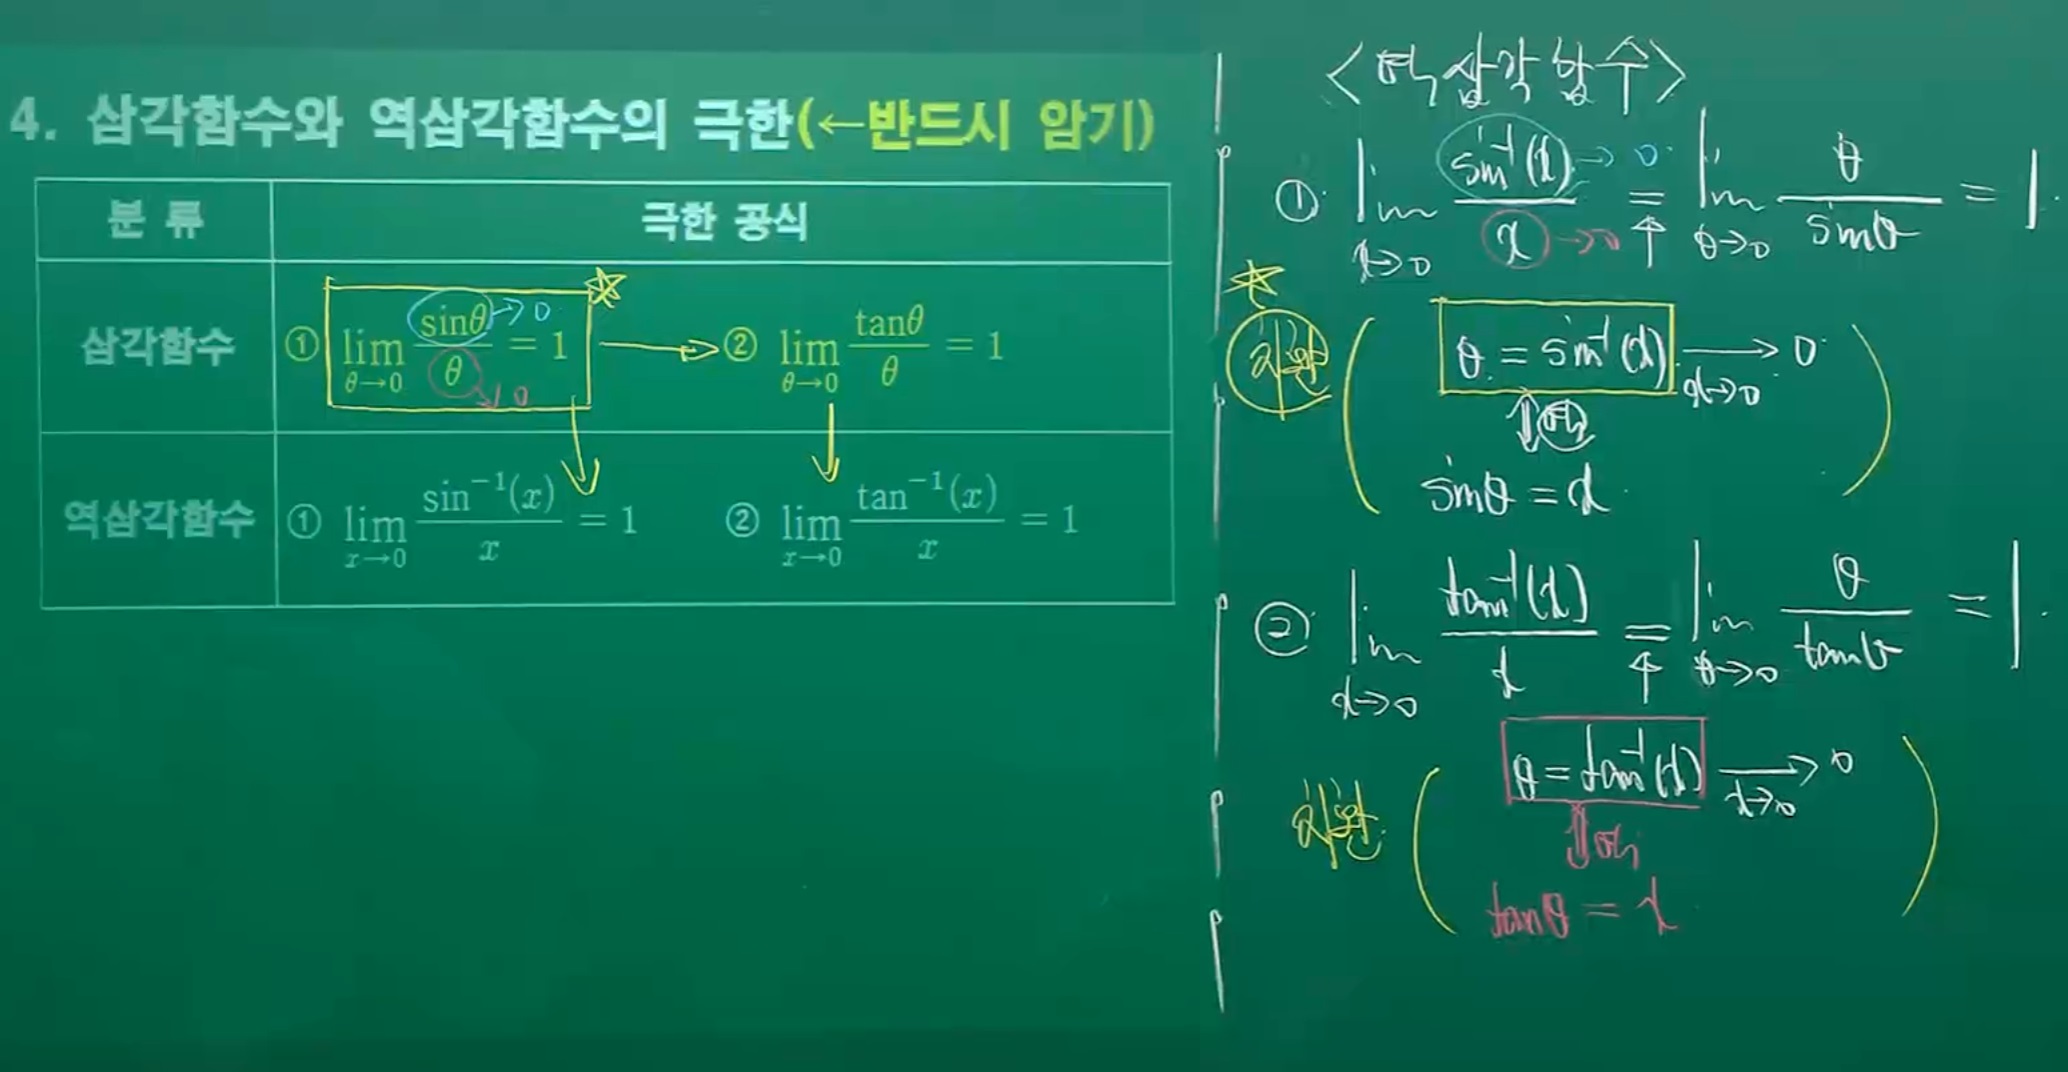 4. 삼각함수와 역삼각함수의 극한(←반드시 암기)
분 류 극한 공식
삼각함수 ① lim_{θ→0} sinθ/θ = 1 ② lim_{θ→0} tanθ/θ = 1
→0
→0
역삼각함수 ① lim_{x→0} sin⁻¹(x)/x = 1 ② lim_{x→0} tan⁻¹(x)/x = 1
<역삼각함수>
① lim_{x→0} sin⁻¹(x)/x = lim_{θ→0} θ/sinθ = 1.
→0
→0
치환 ( θ = sin⁻¹(x) →_{x→0} 0
⇕ 역
sinθ = x )
② lim_{x→0} tan⁻¹(x)/x = lim_{θ→0} θ/tanθ = 1.
치환 ( θ = tan⁻¹(x) →_{x→0} 0
⇕ 역
tanθ = x )